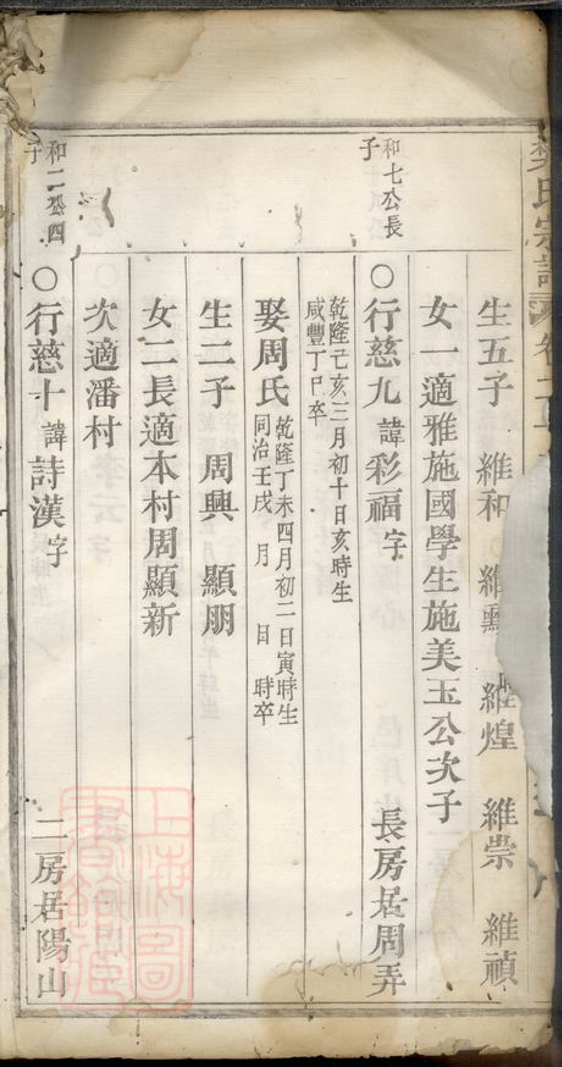 氏宗譜 卷二
生五子 維和 維 維煌 維崇 維禎
女一適雅施國學生施美玉公次子
和七公長
子
〇行慈九諱彩福字 長房居周弄
乾隆己亥三月初十日亥時生
咸豐丁巳卒
娶周氏
乾隆丁未四月初二日寅時生
同治壬戌 月 日 時卒
生二子 周興 顯朋
女二長適本村周顯新
次適潘村
和二公四
子
〇行慈十諱詩漢字 二房居陽山
上海圖
書館藏